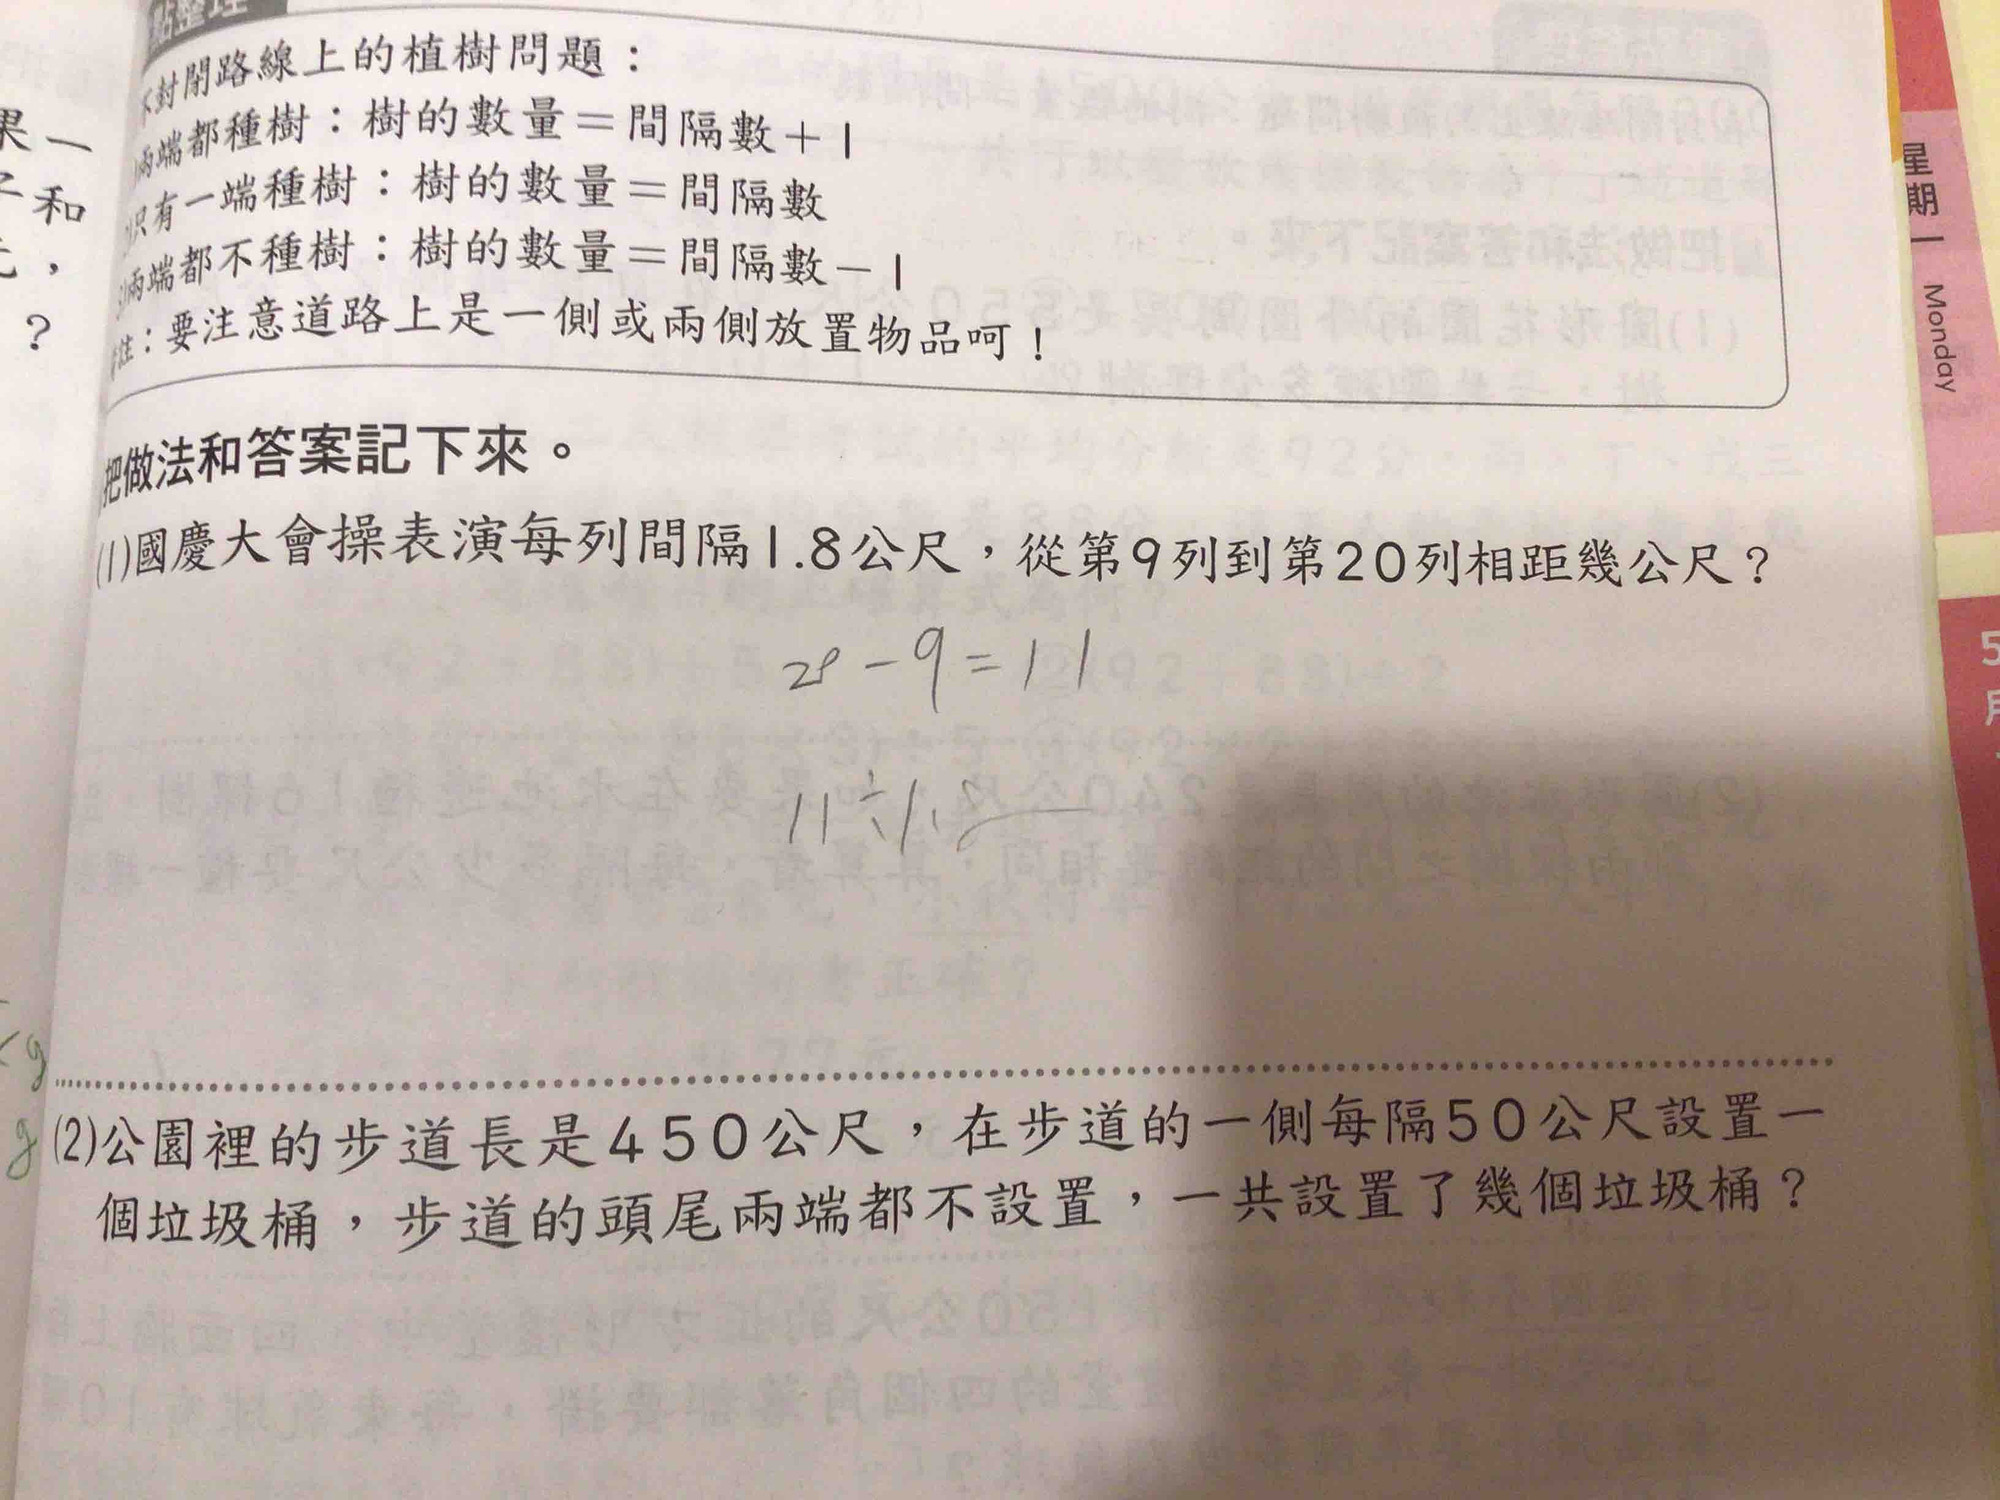 點整理
不封閉路線上的植樹問題：
兩端都種樹：樹的數量＝間隔數＋1
只有一端種樹：樹的數量＝間隔數
兩端都不種樹：樹的數量＝間隔數－1
註：要注意道路上是一側或兩側放置物品呵！
把做法和答案記下來。
(1)國慶大會操表演每列間隔1.8公尺，從第9列到第20列相距幾公尺？
20－9＝11
11÷1.8
(2)公園裡的步道長是450公尺，在步道的一側每隔50公尺設置一
個垃圾桶，步道的頭尾兩端都不設置，一共設置了幾個垃圾桶？
果一
和
，
？
g
g
星期一 Monday
5